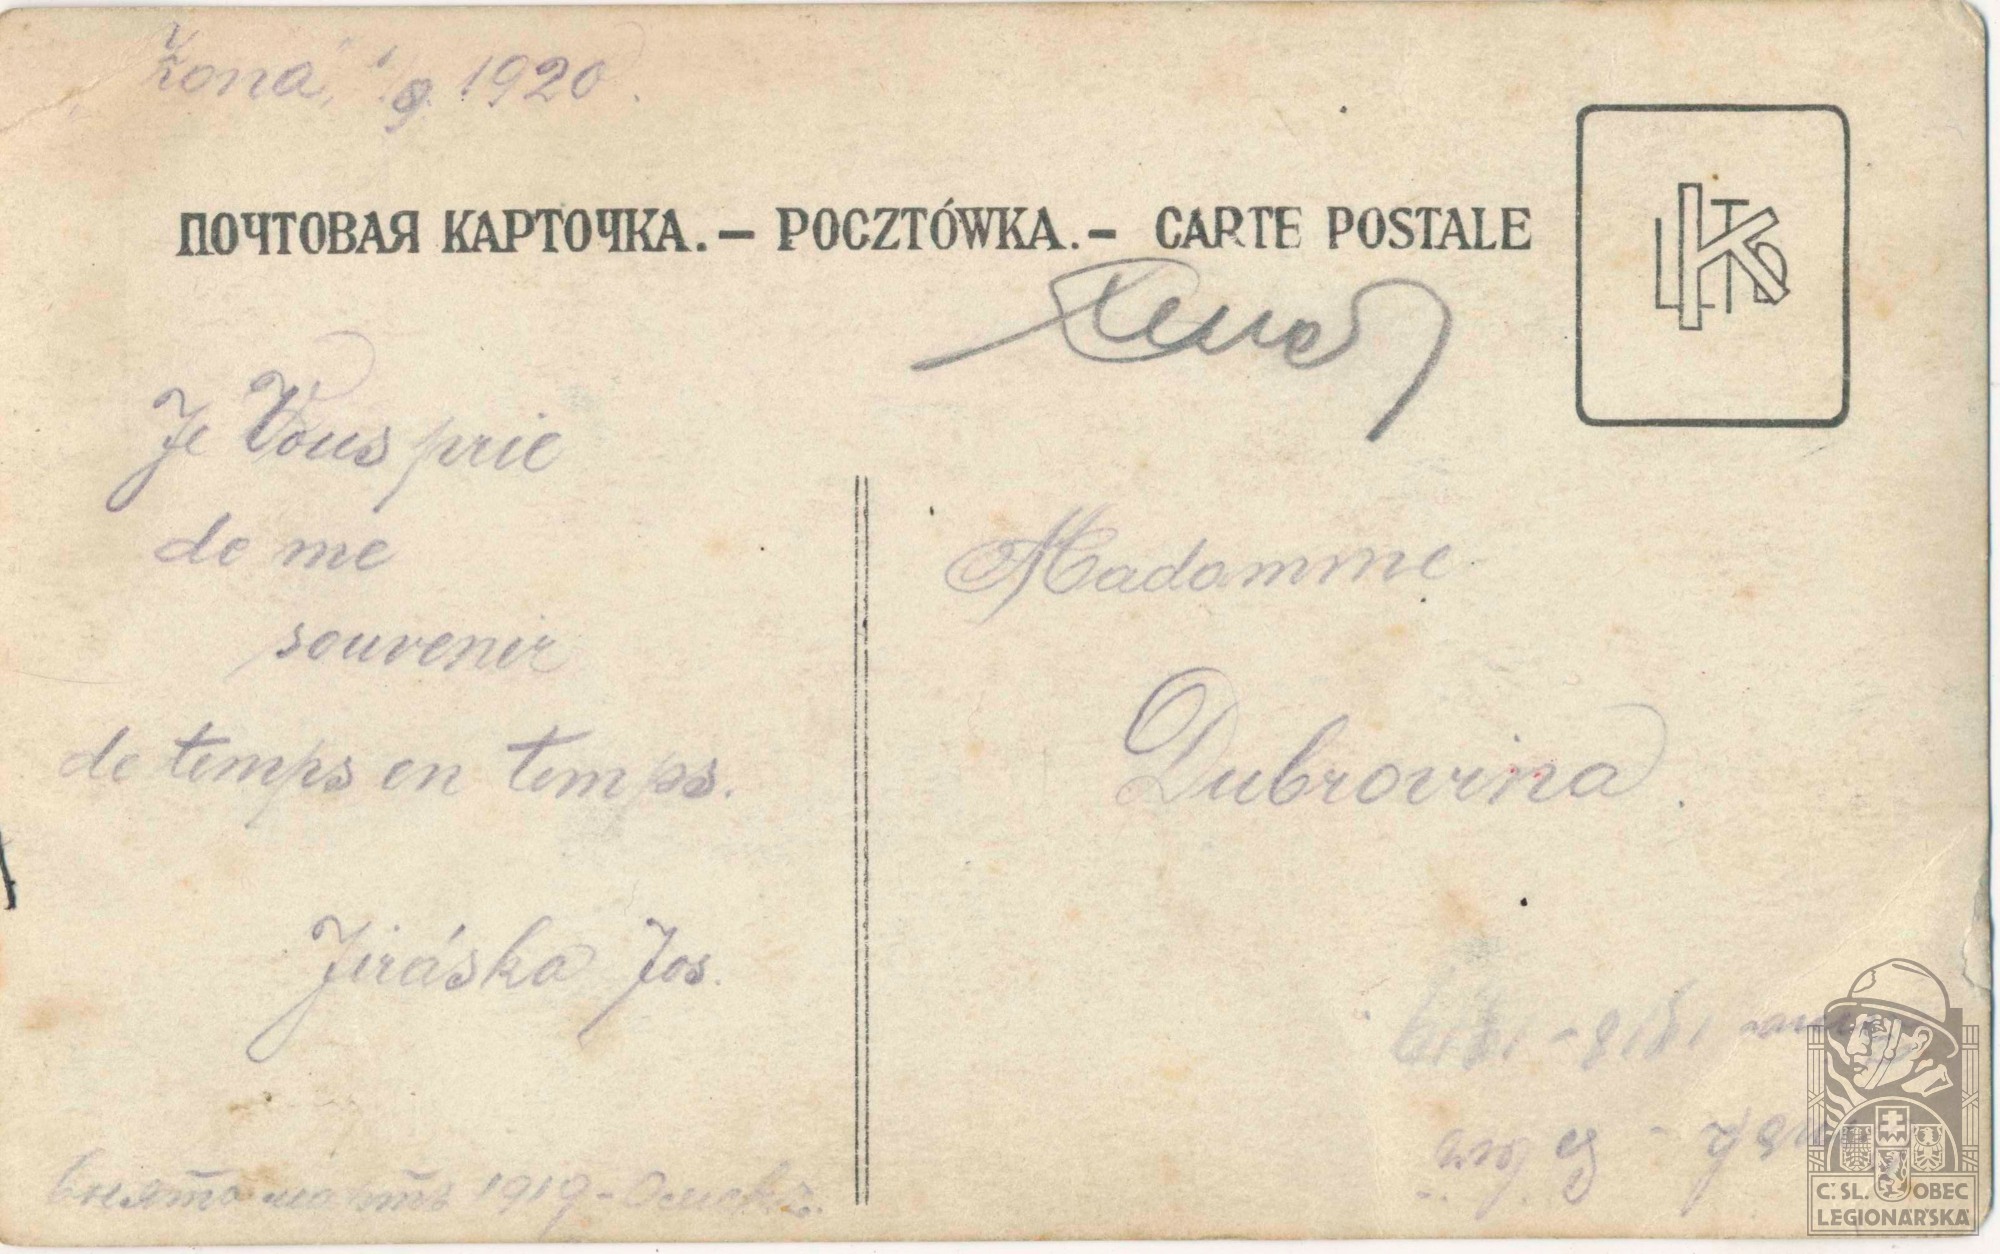 "Žona", 1/9. 1920.
ПОЧТОВАЯ КАРТОЧКА. – POCZTÓWKA. – CARTE POSTALE
Je Vous prie
de me
souvenir
de temps en temps.
Jiráska Jos.
Madamme
Dubrovina.
1919 - Омскъ.
1918-1919
Č. SL. OBEC
LEGIONÁŘSKÁ